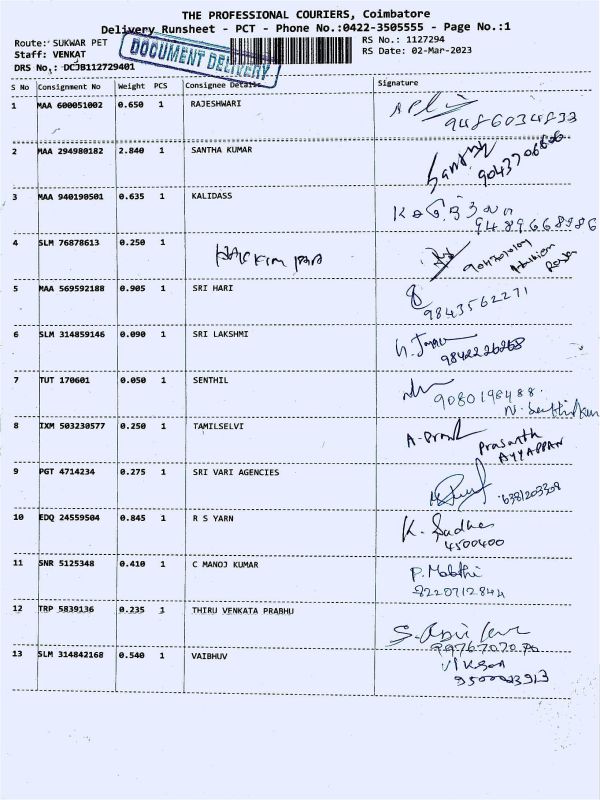 THE PROFESSIONAL COURIERS, Coimbatore
Delivery Runsheet - PCT - Phone No.:0422-3505555 - Page No.:1
Route: SUKWAR PET RS No.: 1127294
Staff: VENKAT RS Date: 02-Mar-2023
DRS No.: DCJB112729401
DOCUMENT DELIVERY
S No Consignment No Weight PCS Consignee Details Signature
1 MAA 600051002 0.650 1 RAJESHWARI
9486034833
2 MAA 294980182 2.840 1 SANTHA KUMAR
3 MAA 940190501 0.635 1 KALIDASS
9489668986
4 SLM 76878613 0.250 1
5 MAA 569592188 0.905 1 SRI HARI
9843562271
6 SLM 314859146 0.090 1 SRI LAKSHMI
7 TUT 170601 0.050 1 SENTHIL
9080198488
8 IXM 503230577 0.250 1 TAMILSELVI
Prasanth
AYYAPPAN
9 PGT 4714234 0.275 1 SRI VARI AGENCIES
6381203308
10 EDQ 24559504 0.845 1 R S YARN K. Sudha
4500400
11 SNR 5125348 0.410 1 C MANOJ KUMAR
8220712844
12 TRP 5839136 0.235 1 THIRU VENKATA PRABHU
13 SLM 314842168 0.540 1 VAIBHUV